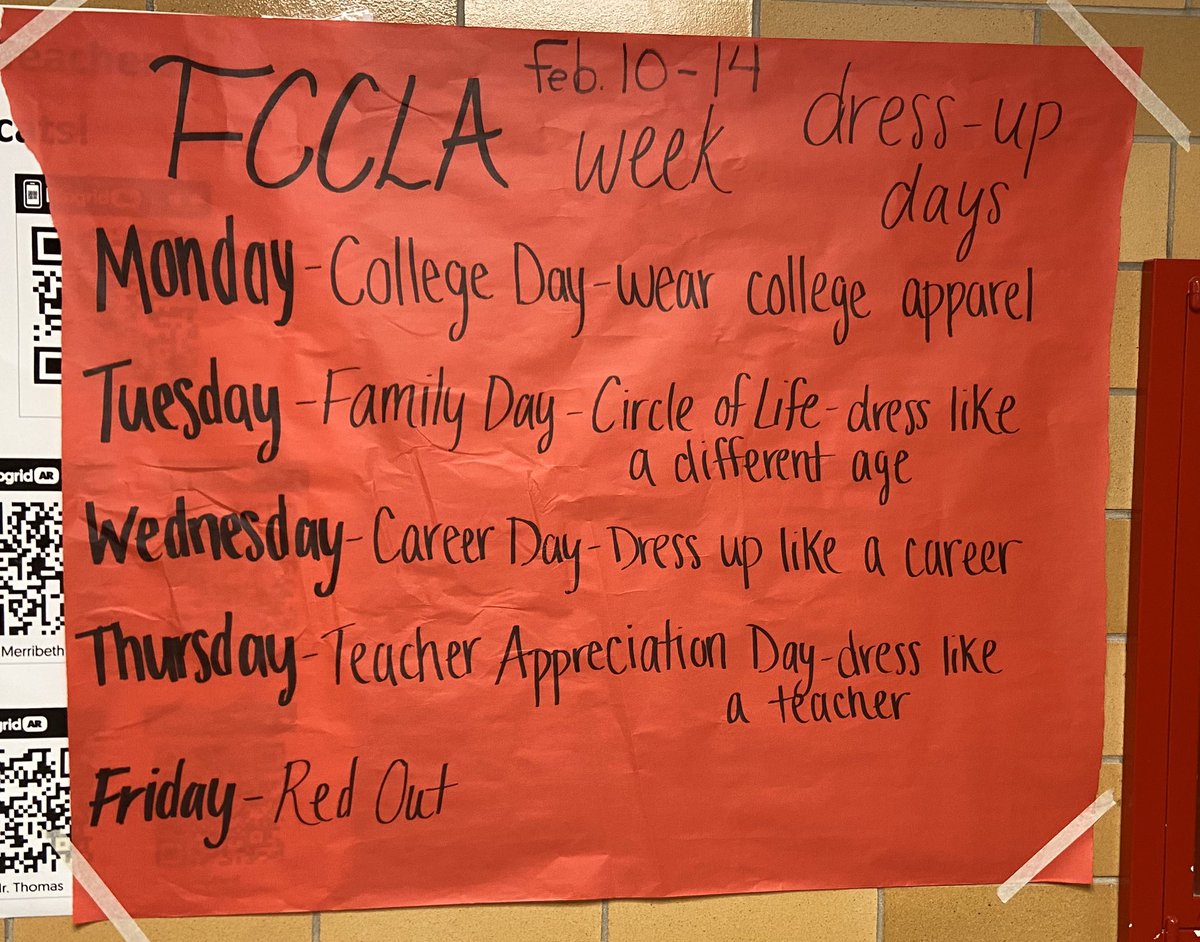 FCCLA Feb. 10-14 week dress-up days
Monday - College Day - wear college apparel
Tuesday - Family Day - Circle of Life - dress like
a different age
Wednesday - Career Day - Dress up like a career
Thursday - Teacher Appreciation Day - dress like
a teacher
Friday - Red Out
AR
Merribeth
AR
Thomas